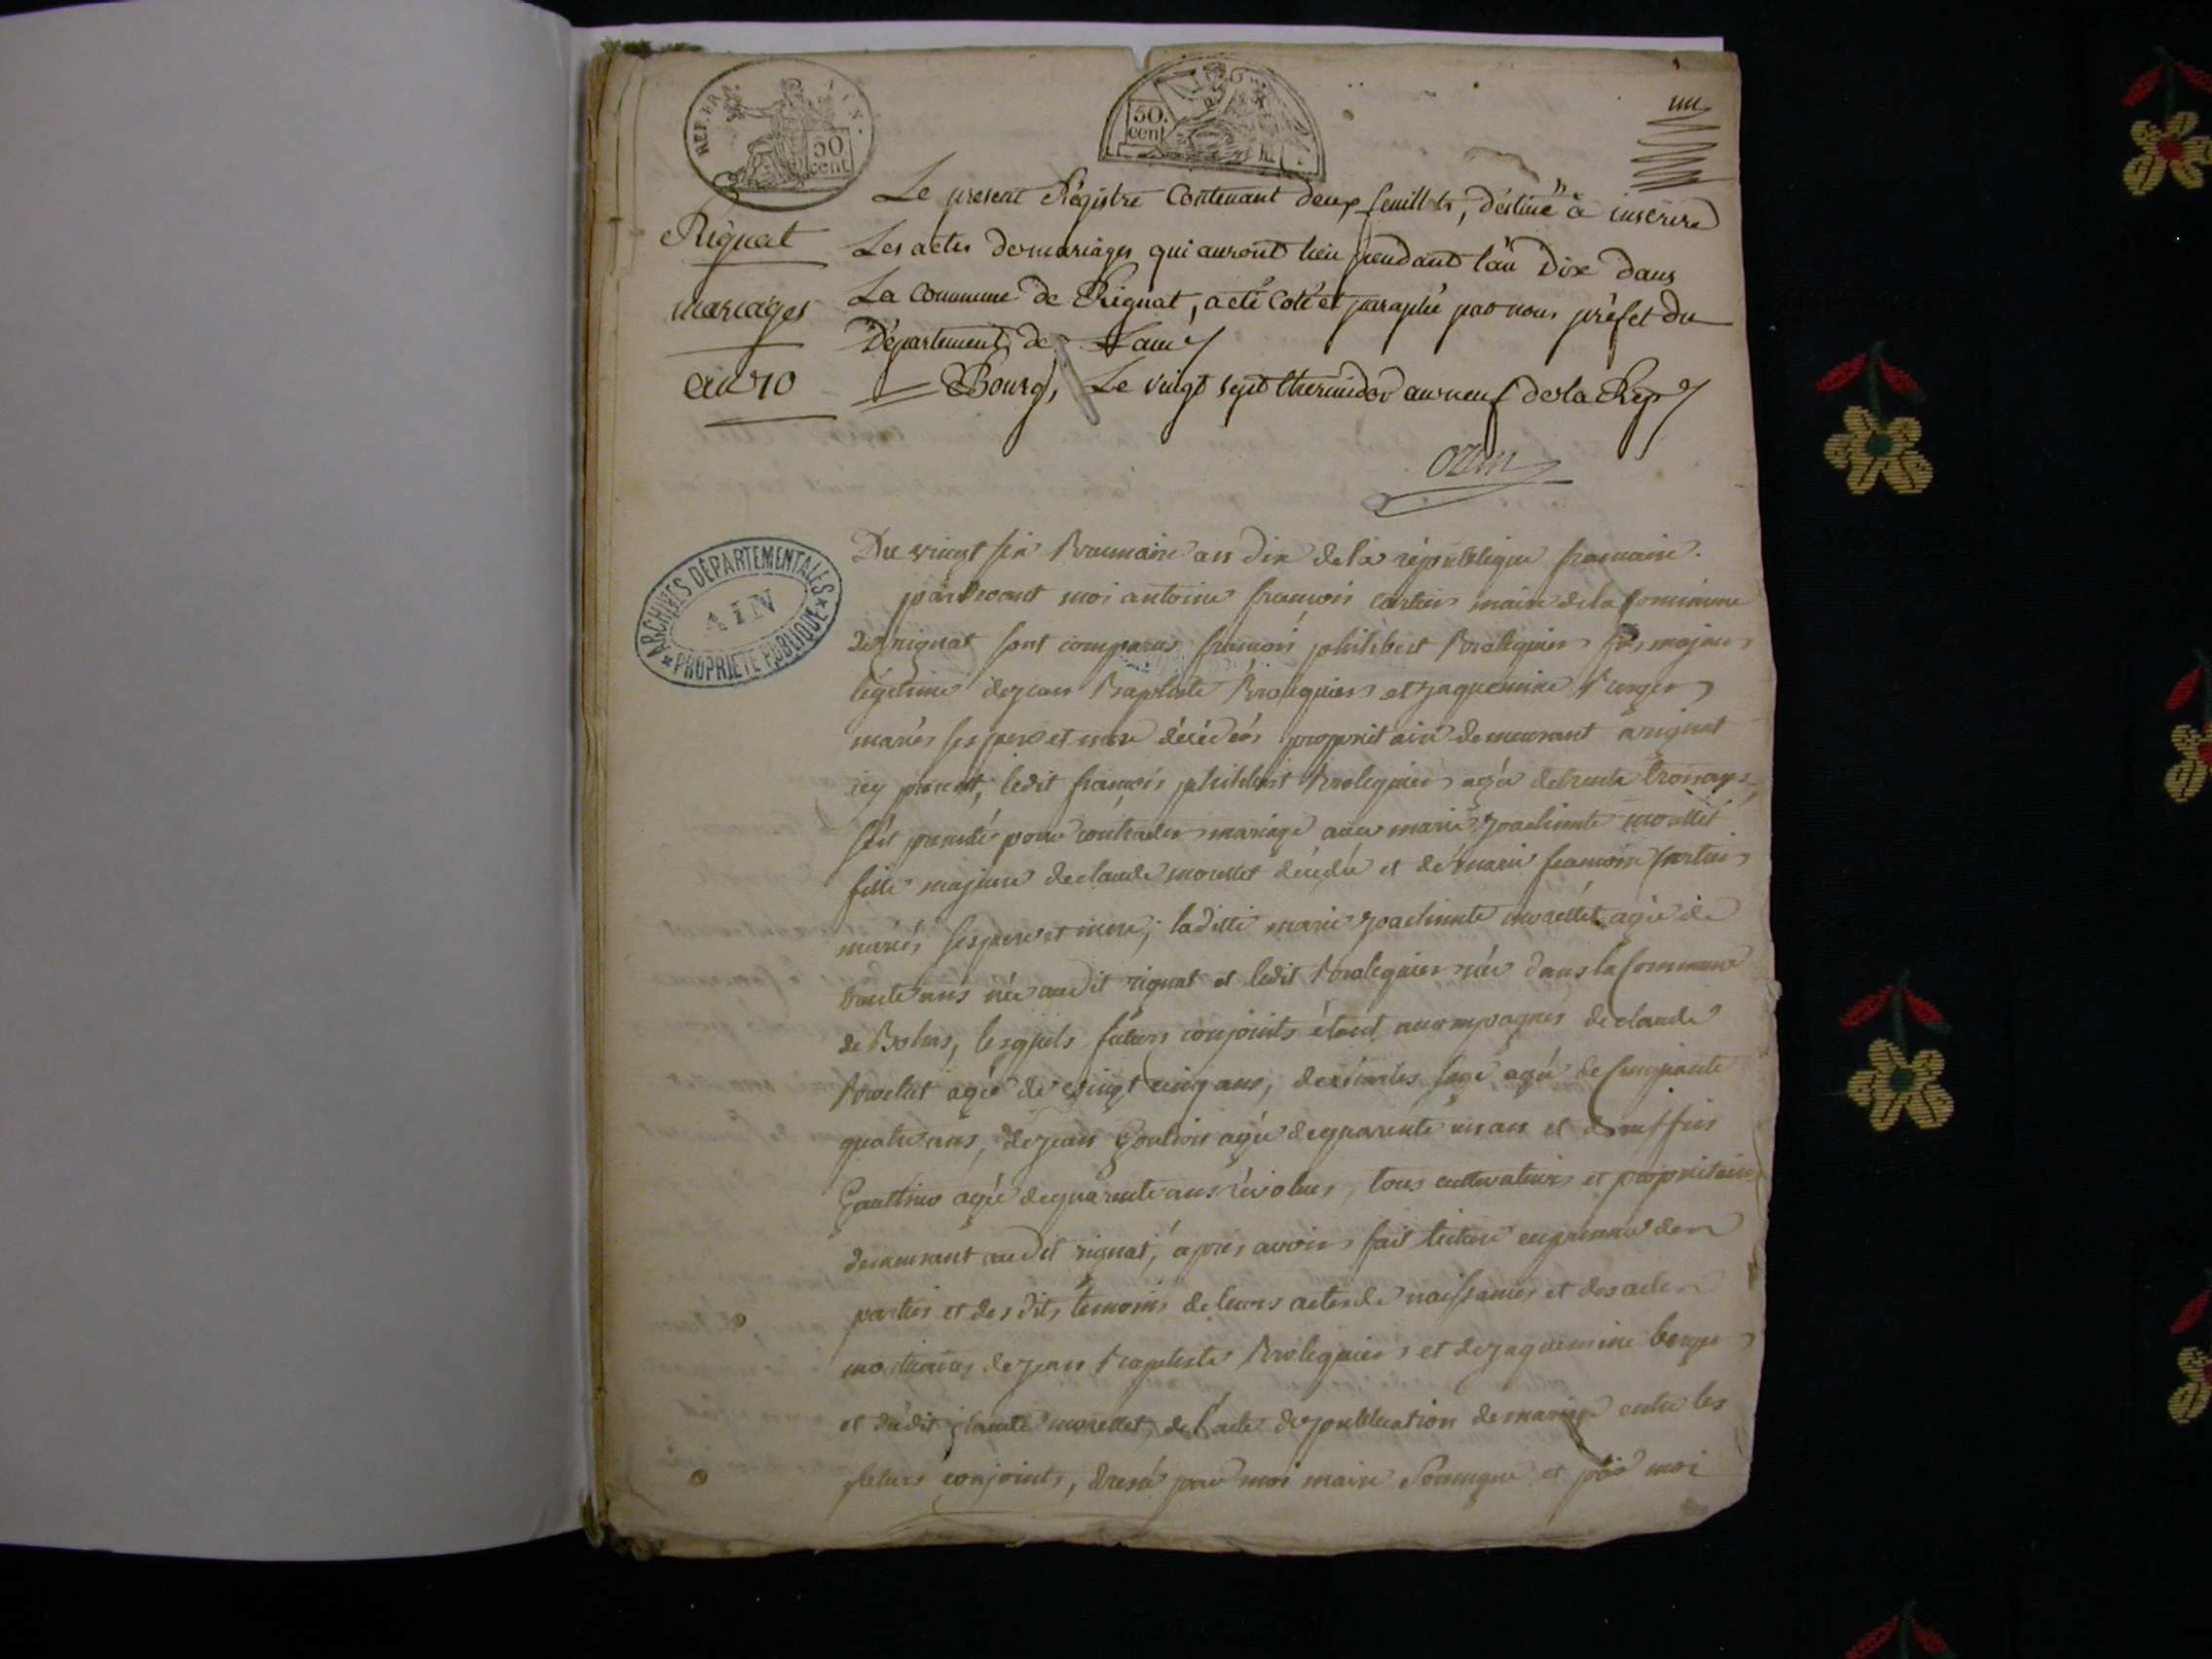 REP. FR
50
cent
50.
cent
un
Le present Régistre Contenant deux feuillets, déstiné à inscrire
Rignat
Les actes de mariages qui auront lieu pendant l'an Dix dans
La commune de Rignat, a eté Coté et paraphé par nous préfet du
mariages
Département de L'ain
an 10
Bourg, Le vingt sept thermidor an neuf de la Rep
Ozun
ARCHIVES DÉPARTEMENTALES
AIN
PROPRIÉTÉ PUBLIQUE
Du vingt six Brumaire an dix de la république francaise.
pardevant moi antoine françois maire de la Commune
de rignat sont comparus françois philibert Brolequier fils majeur
légitime de jean Baptiste Brolequier et jaquemine Berger
mariés ses pere et mere décédés propriétaire demeurant a rignat
icy present, ledit françois philibert Brolequier agé de trente trois ans
s'est presenté pour contracter mariage avec marie morellet
fille majeure de claude morellet décédé et de marie francoise
mariés ses pere et mere; laditte marie morellet agée de
trente ans née audit rignat et ledit Brolequier née dans la Commune
de Bohas, lesquels futurs conjoints étant accompagnés de claude
agée de vingt cinq ans, de agé de cinquante
quatre ans, de jean agée de quarante un ans et de
agée de quarante ans révolus, tous cultivateurs et propriétaires
demeurant audit rignat, apres avoir fait lecture en presence des
parties et des dits témoins de leurs actes de naissances et des actes
mortuaires de jean Baptiste Brolequier et de jaquemine berger
et dudit claude morellet, de l'acte de publication de mariage entre les
futurs conjoints, dressé par moi maire et par moi